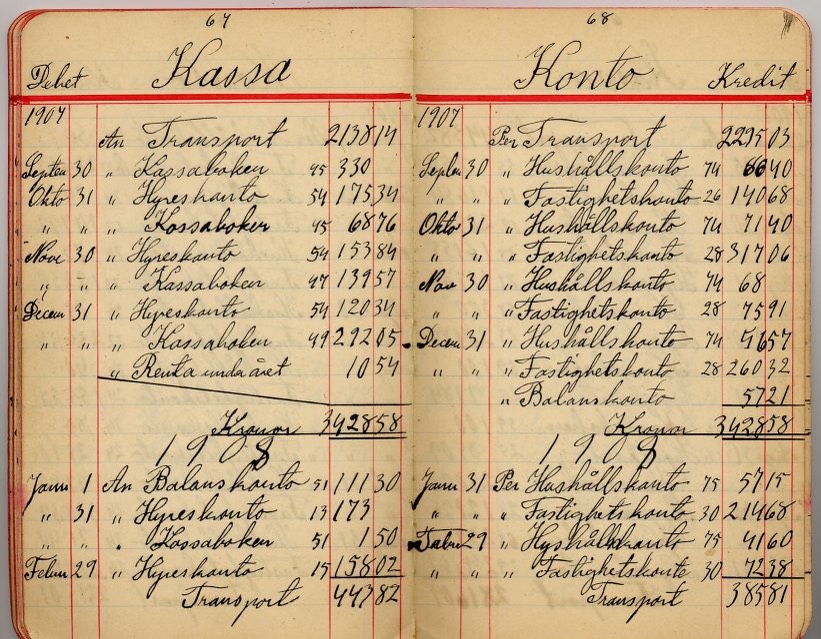 67
Debet Kassa
1907
An Transport 2138 14
Septem 30 " Kassaboken 45 330
Okto 31 " Hyreskonto 54 175 34
" " " Kassaboken 45 68 76
Nove 30 " Hyreskonto 54 153 84
" " " Kassaboken 47 139 57
Decem 31 " Hyreskonto 54 120 34
" " " Kassaboken 49 292 05
" Renta under året 10 54
Kronor 3428 58
1908
Janu 1 An Balanskonto 51 111 30
" 31 " Hyreskonto 13 173
" " " Kassaboken 51 1 50
Febru 29 " Hyreskonto 15 158 02
Transport 443 82
68
Konto Kredit
1907
Per Transport 2295 03
Septem 30 " Hushållskonto 74 66 40
" " " Fastighetskonto 26 140 68
Okto 31 " Hushållskonto 74 71 40
" " " Fastighetskonto 28 317 06
Nov 30 " Hushållskonto 74 68
" " " Fastighetskonto 28 75 91
Decem 31 " Hushållskonto 74 56 57
" " " Fastighetskonto 28 260 32
" Balanskonto 57 21
Kronor 3428 58
1908
Janu 31 Per Hushållskonto 75 57 15
" " " Fastighetskonto 30 214 68
Febru 29 " Hushållskonto 75 41 60
" " " Fastighetskonto 30 72 38
Transport 385 81